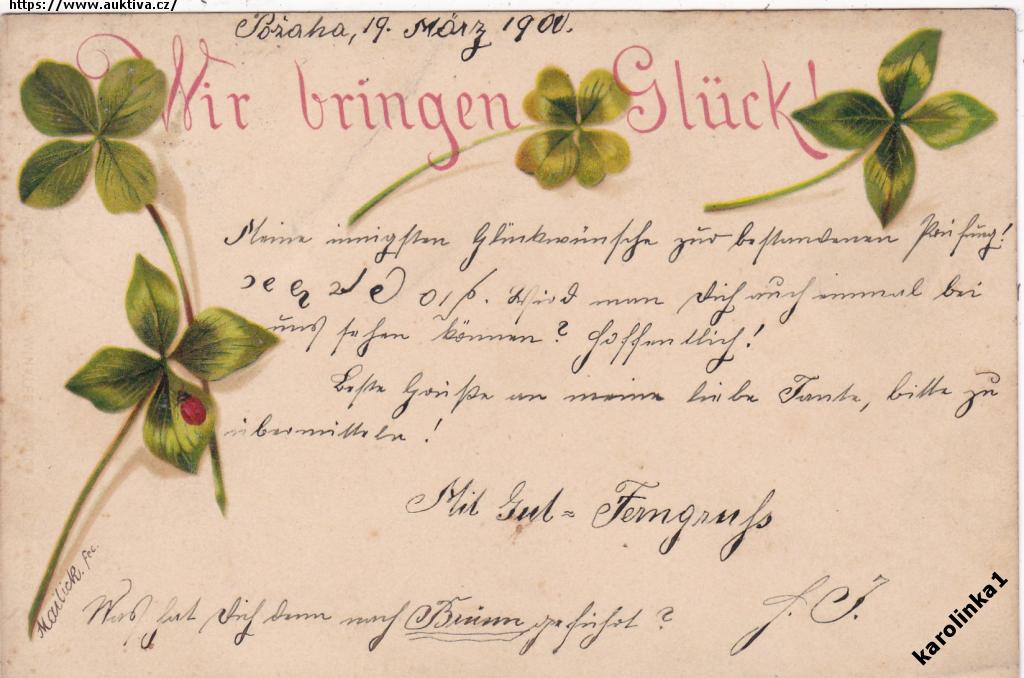 https://www.auktiva.cz/
19. März 190
Wir bringen Glück!
Meine innigsten Glückwünsche zur bestandenen Prüfung!
Wird man Dich auch einmal bei
uns sehen können? Hoffentlich!
Beste Grüße an meine liebe Tante, bitte zu
übermitteln!
Mit Gut= Ferngruss
Mailick. fec.
Was hat Dich denn nach Brünn geführt?
karolinka1